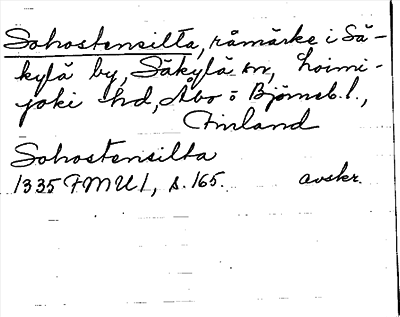 Sohostensilta, råmärke i Sä-
kylä by, Säkylä sn, Loimi-
joki hd, Åbo o Björneb. l.,
Finland
Sohostensilta
1335 FMU 1, s. 165. avskr.